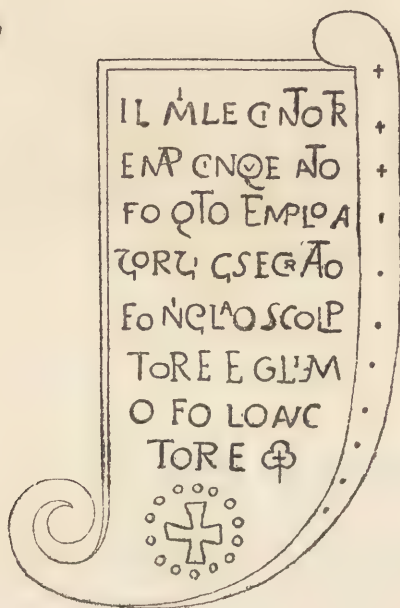 IL MILE CINTO TR
ENP CINQE NATO
FO QTO TEMPLO A
ÇORÇI CSECRATO
FO NICLAO SCOLP
TORE E GLIELM
O FO LO AUC
TORE